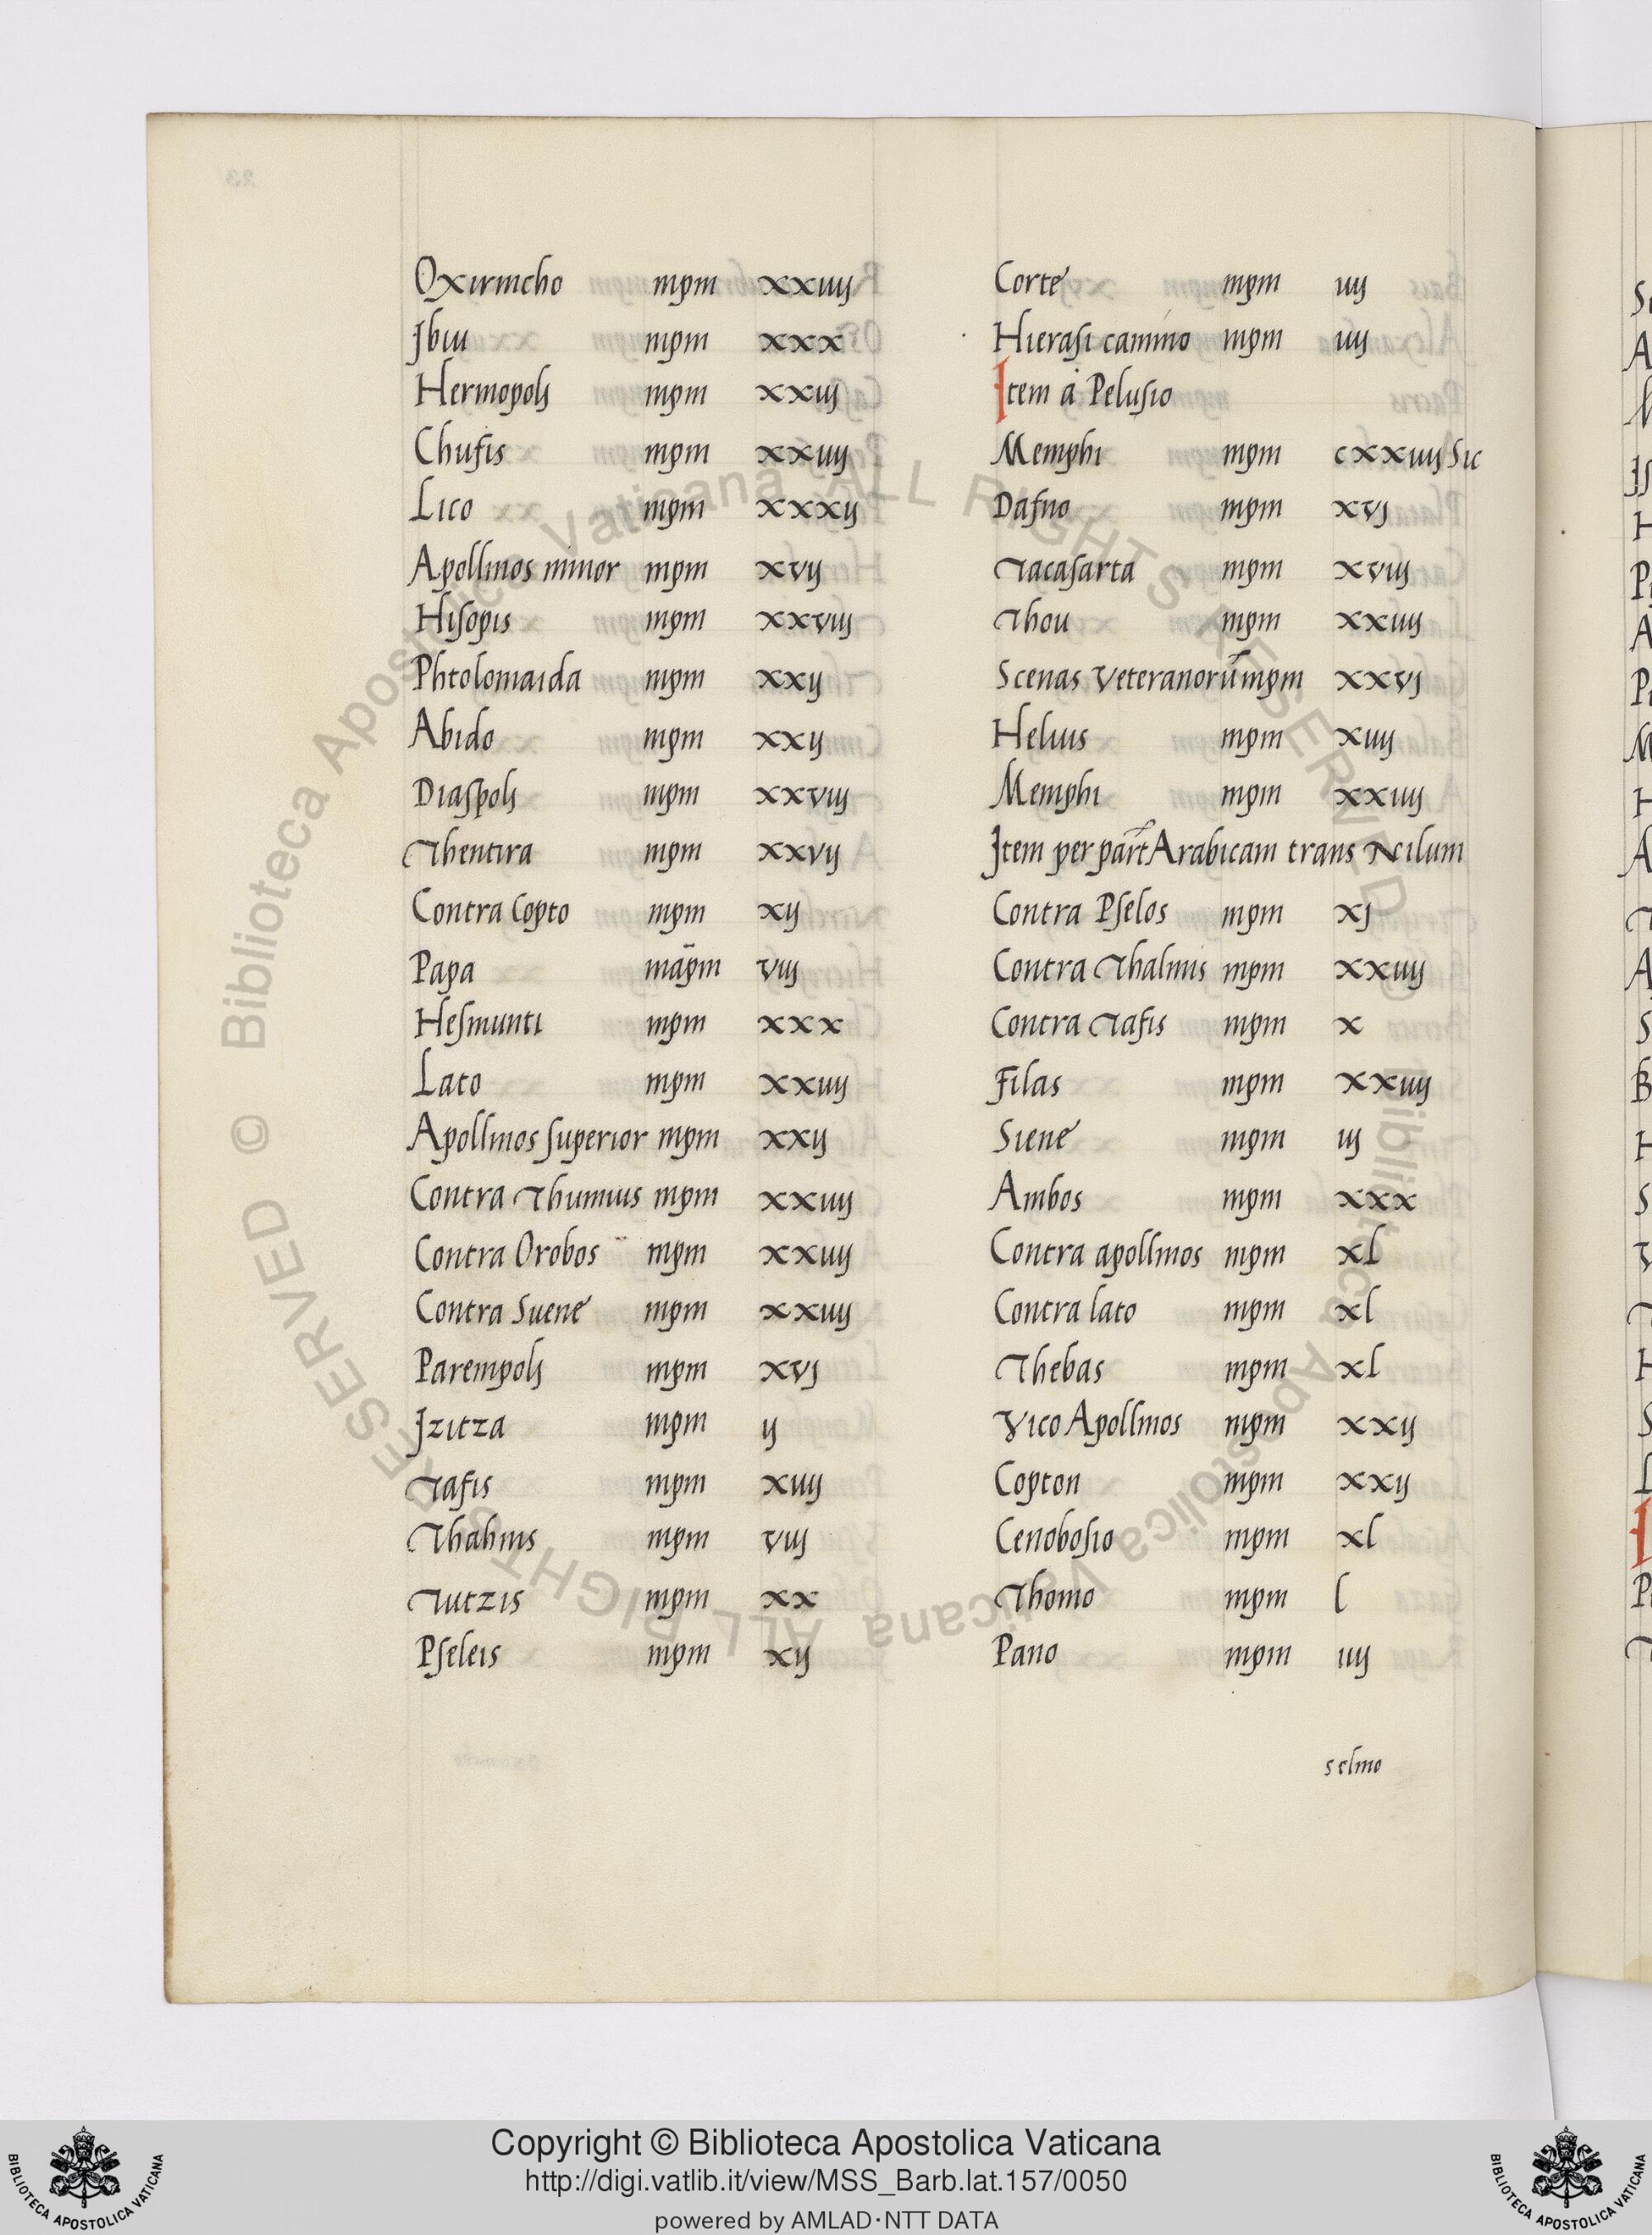 Oxirincho mpm xxiiij
Ibiu mpm xxx
Hermopolj mpm xxiij
Chufis mpm xxiiij
Lico mpm xxxij
Apollinos minor mpm xvij
Hisopis mpm xxviij
Phtolomaida mpm xxij
Abido mpm xxij
Diaspolj mpm xxviij
Thentira mpm xxvij
Contra Copto mpm xij
Papa māpm viij
Hesmunti mpm xxx
Lato mpm xxiiij
Apollinos superior mpm xxij
Contra Thumuis mpm xxiiij
Contra Orobos mpm xxiiij
Contra Suene mpm xxiiij
Parempolj mpm xvj
Izitza mpm ij
Tafis mpm xiiij
Thalmis mpm viij
Tutzis mpm xx
Pseleis mpm xij
Corte mpm iiij
Hierasi camino mpm iiij
Item á Pelusio
Memphi mpm cxxiiij Sic
Dafno mpm xvj
Tacasarta mpm xviij
Thou mpm xxiiij
Scenas veteranorū mpm xxvj
Heliuis mpm xiiij
Memphi mpm xxiiij
Item per part̄ Arabicam trans Nilum
Contra Pselos mpm xj
Contra Thalmis mpm xxiiij
Contra Tafis mpm x
Filas mpm xxiiij
Siene mpm iij
Ambos mpm xxx
Contra apollinos mpm xl
Contra lato mpm xl
Thebas mpm xl
Vico Apollinos mpm xxij
Copton mpm xxij
Cenobosio mpm xl
Thomo mpm l
Pano mpm iiij
selino
Copyright © Biblioteca Apostolica Vaticana
http://digi.vatlib.it/view/MSS_Barb.lat.157/0050
powered by AMLAD·NTT DATA
BIBLIOTECA APOSTOLICA VATICANA
BIBLIOTECA APOSTOLICA VATICANA